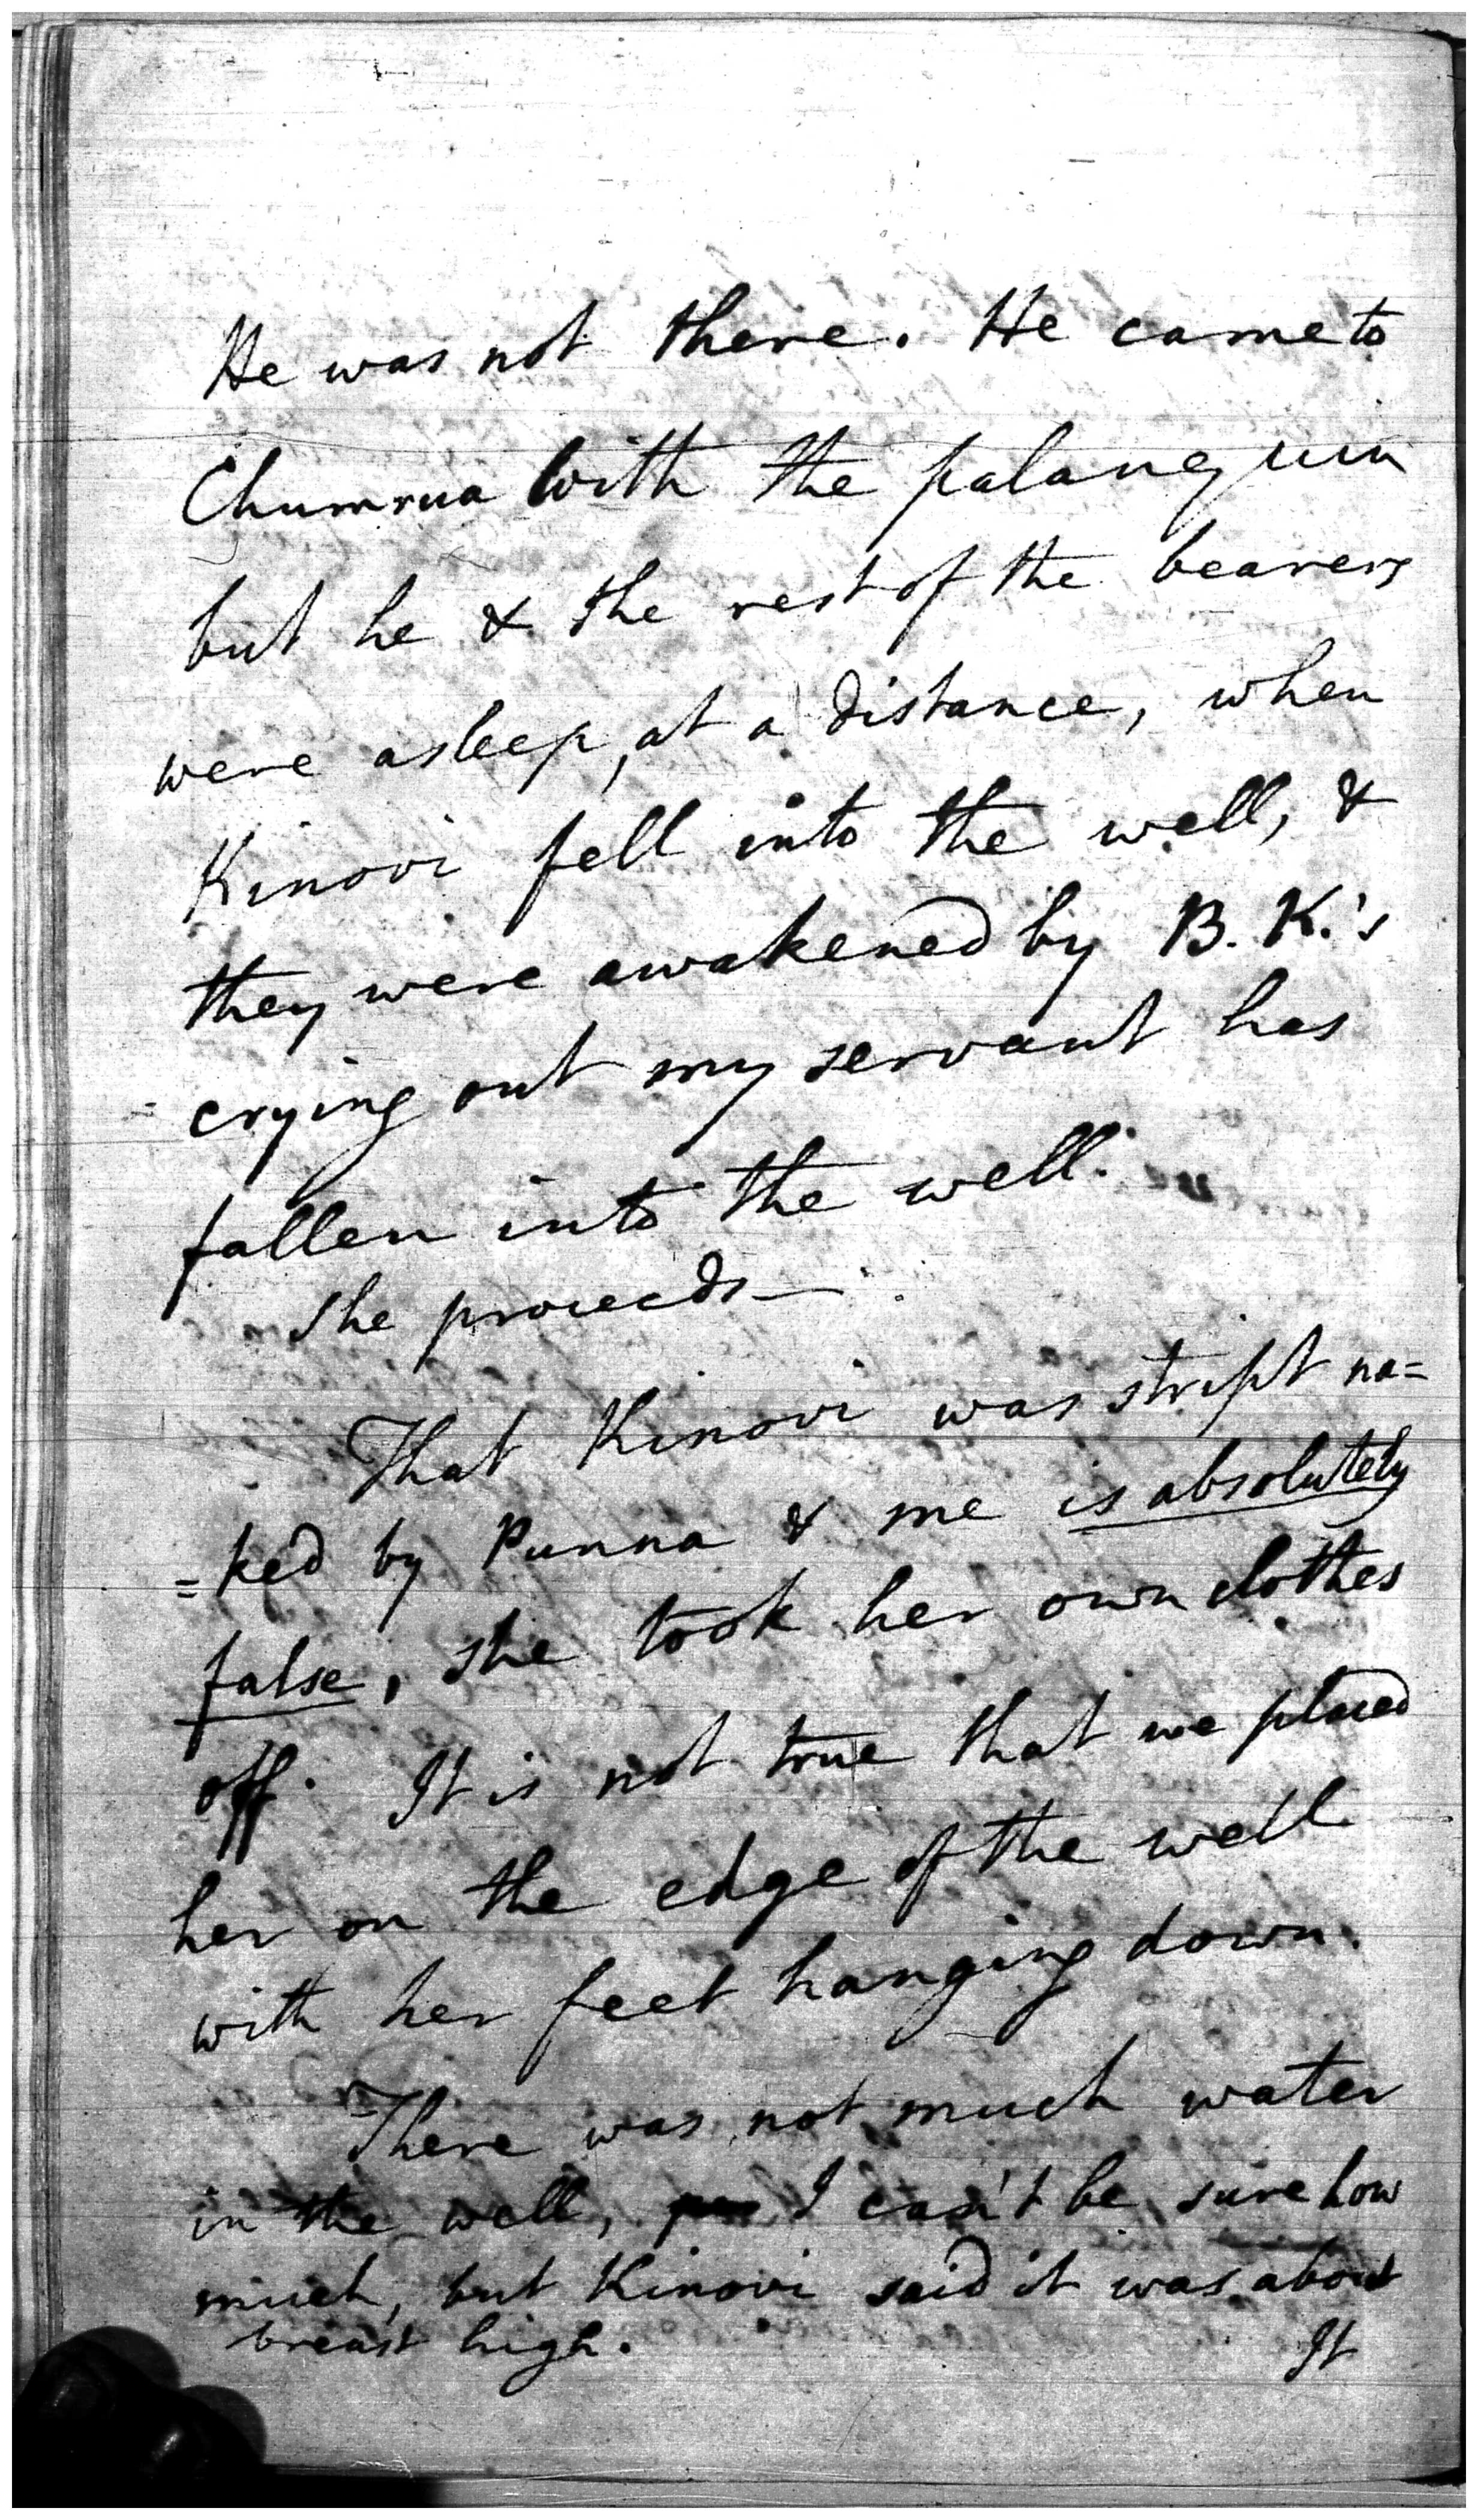 He was not there. He came to
Chumrua with the palanquin
but he & the rest of the bearers
were asleep, at a distance, when
Kinovi fell into the well, &
they were awakened by B. K.'s
crying out my servant has
fallen into the well.
She proceeds—
That Kinovi was stript na=
=ked by Punna & me is absolutely
false, she took her own clothes
off. It is not true that we placed
her on the edge of the well
with her feet hanging down.
There was not much water
in the well, I can't be sure how
much, but Kinovi said it was about
breast high.
It